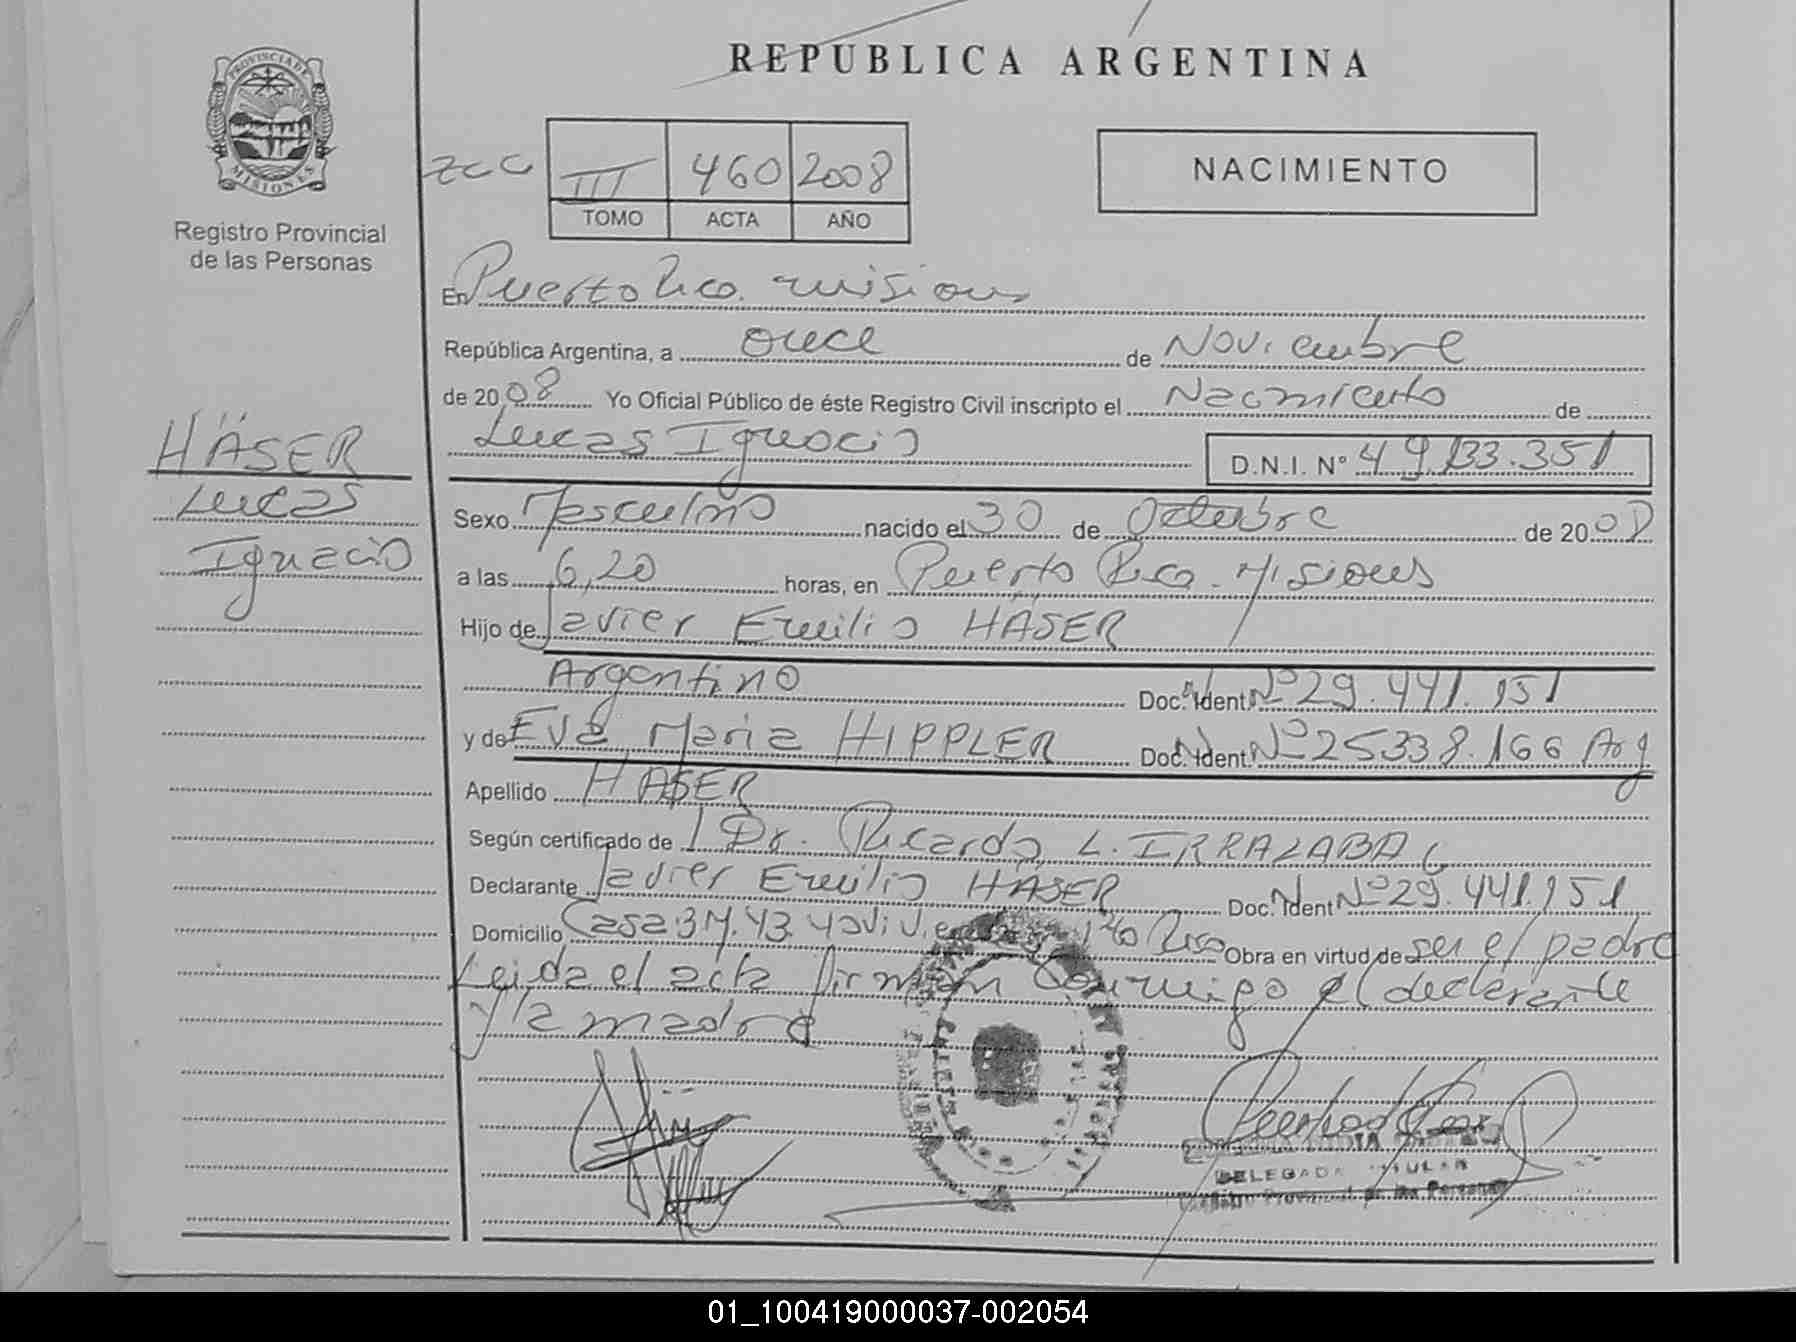 REPUBLICA ARGENTINA
PROVINCIA DE
MISIONES
Registro Provincial
de las Personas
III 460 2008
TOMO ACTA AÑO
NACIMIENTO
En Puerto Rico. misiones
República Argentina, a once de Noviembre
de 2008 Yo Oficial Público de éste Registro Civil inscripto el Nacimiento de
Lucas Ignacio D.N.I. Nº 49.133.351
HÄSER
Lucas
Ignacio
Sexo Masculino nacido el 30 de Octubre de 2008
a las 6,20 horas, en Puerto Rico - Misiones
Hijo de Javier Emilio HÄSER
Argentino Doc. Ident. Nº 29.441.151
y de Eva Maria HIPPLER Doc. Ident. Nº 25338.166 Arg
Apellido HÄSER
Según certificado de Dr. Ricardo L. IRRAZABAL
Declarante Javier Emilio HÄSER Doc. Ident Nº 29.441.151
Domicilio Casa 3 M. 43. 40 Viviendas Pto Rico Obra en virtud de ser el padre
Leida el acta firman conmigo el declarante
y la madre
DELEGADA TITULAR
Registro Provincial de las Personas
01_100419000037-002054